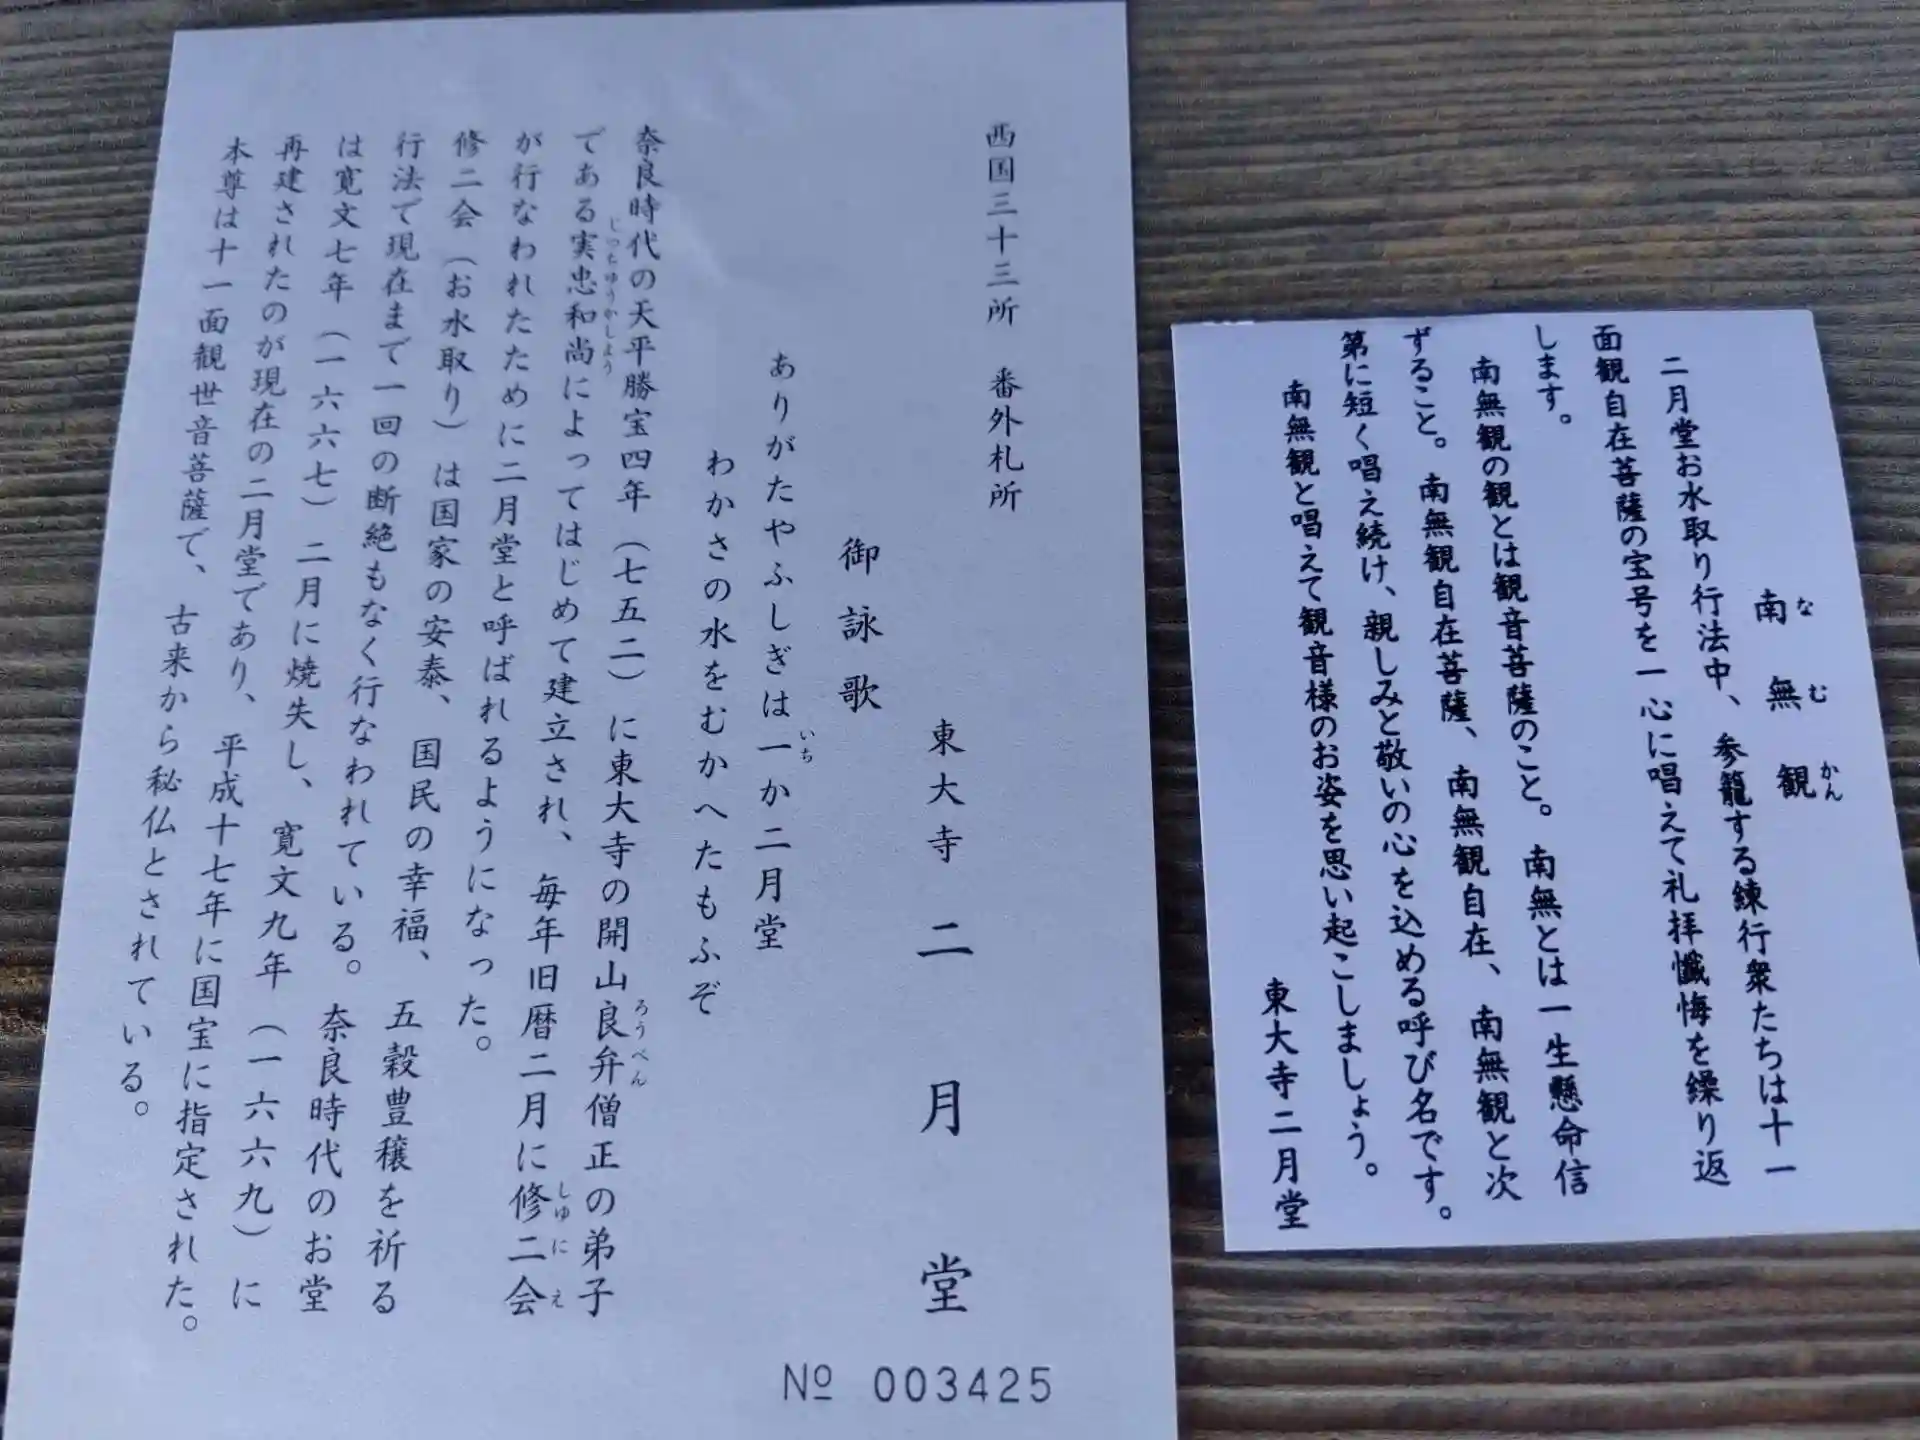 西国三十三所　番外札所
東大寺 二月堂
御詠歌
ありがたやふしぎは一か二月堂
いち
わかさの水をむかへたもふぞ
奈良時代の天平勝宝四年（七五二）に東大寺の開山良弁僧正の弟子
ろうべん
である実忠和尚によってはじめて建立され、毎年旧暦二月に修二会
じっちゅうかしょう
しゅにえ
が行なわれたために二月堂と呼ばれるようになった。
修二会（お水取り）は国家の安泰、国民の幸福、五穀豊穣を祈る
行法で現在まで一回の断絶もなく行なわれている。奈良時代のお堂
は寛文七年（一六六七）二月に焼失し、寛文九年（一六六九）に
再建されたのが現在の二月堂であり、平成十七年に国宝に指定された。
本尊は十一面観世音菩薩で、古来から秘仏とされている。
Nº 003425
南無観
なむかん
二月堂お水取り行法中、参籠する練行衆たちは十一
面観自在菩薩の宝号を一心に唱えて礼拝懺悔を繰り返
します。
南無観の観とは観音菩薩のこと。南無とは一生懸命信
ずること。南無観自在菩薩、南無観自在、南無観と次
第に短く唱え続け、親しみと敬いの心を込める呼び名です。
南無観と唱えて観音様のお姿を思い起こしましょう。
東大寺二月堂